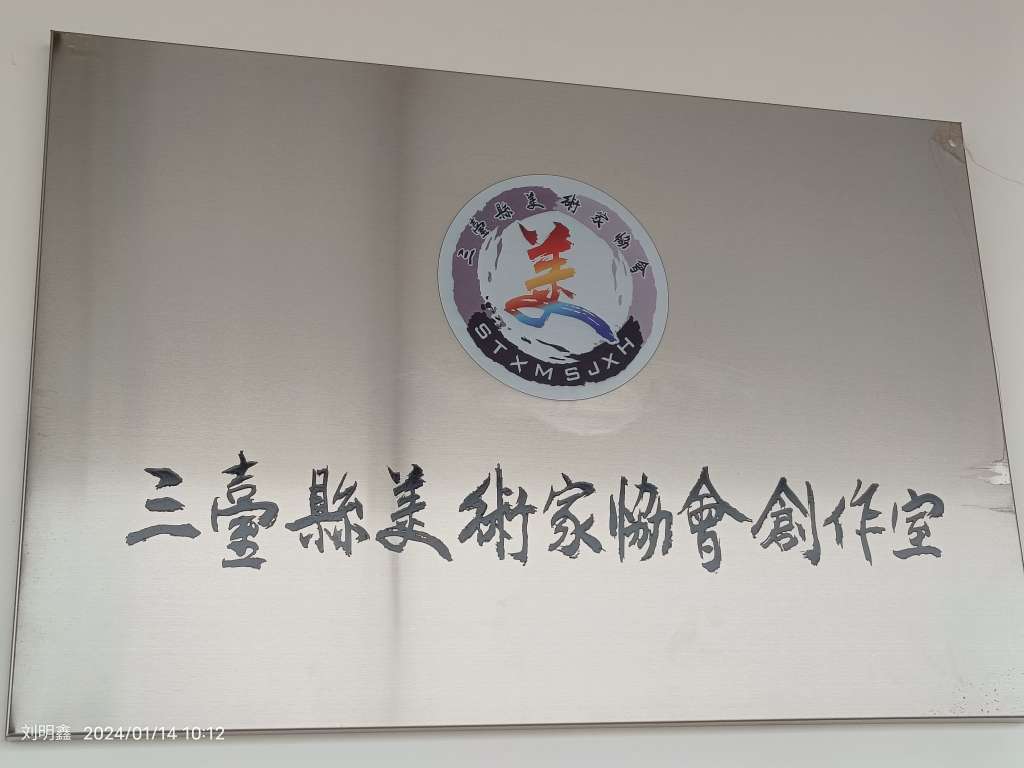 三臺縣美術家協會
美
STXMSJXH
三臺縣美術家協會創作室
刘明鑫 2024/01/14 10:12